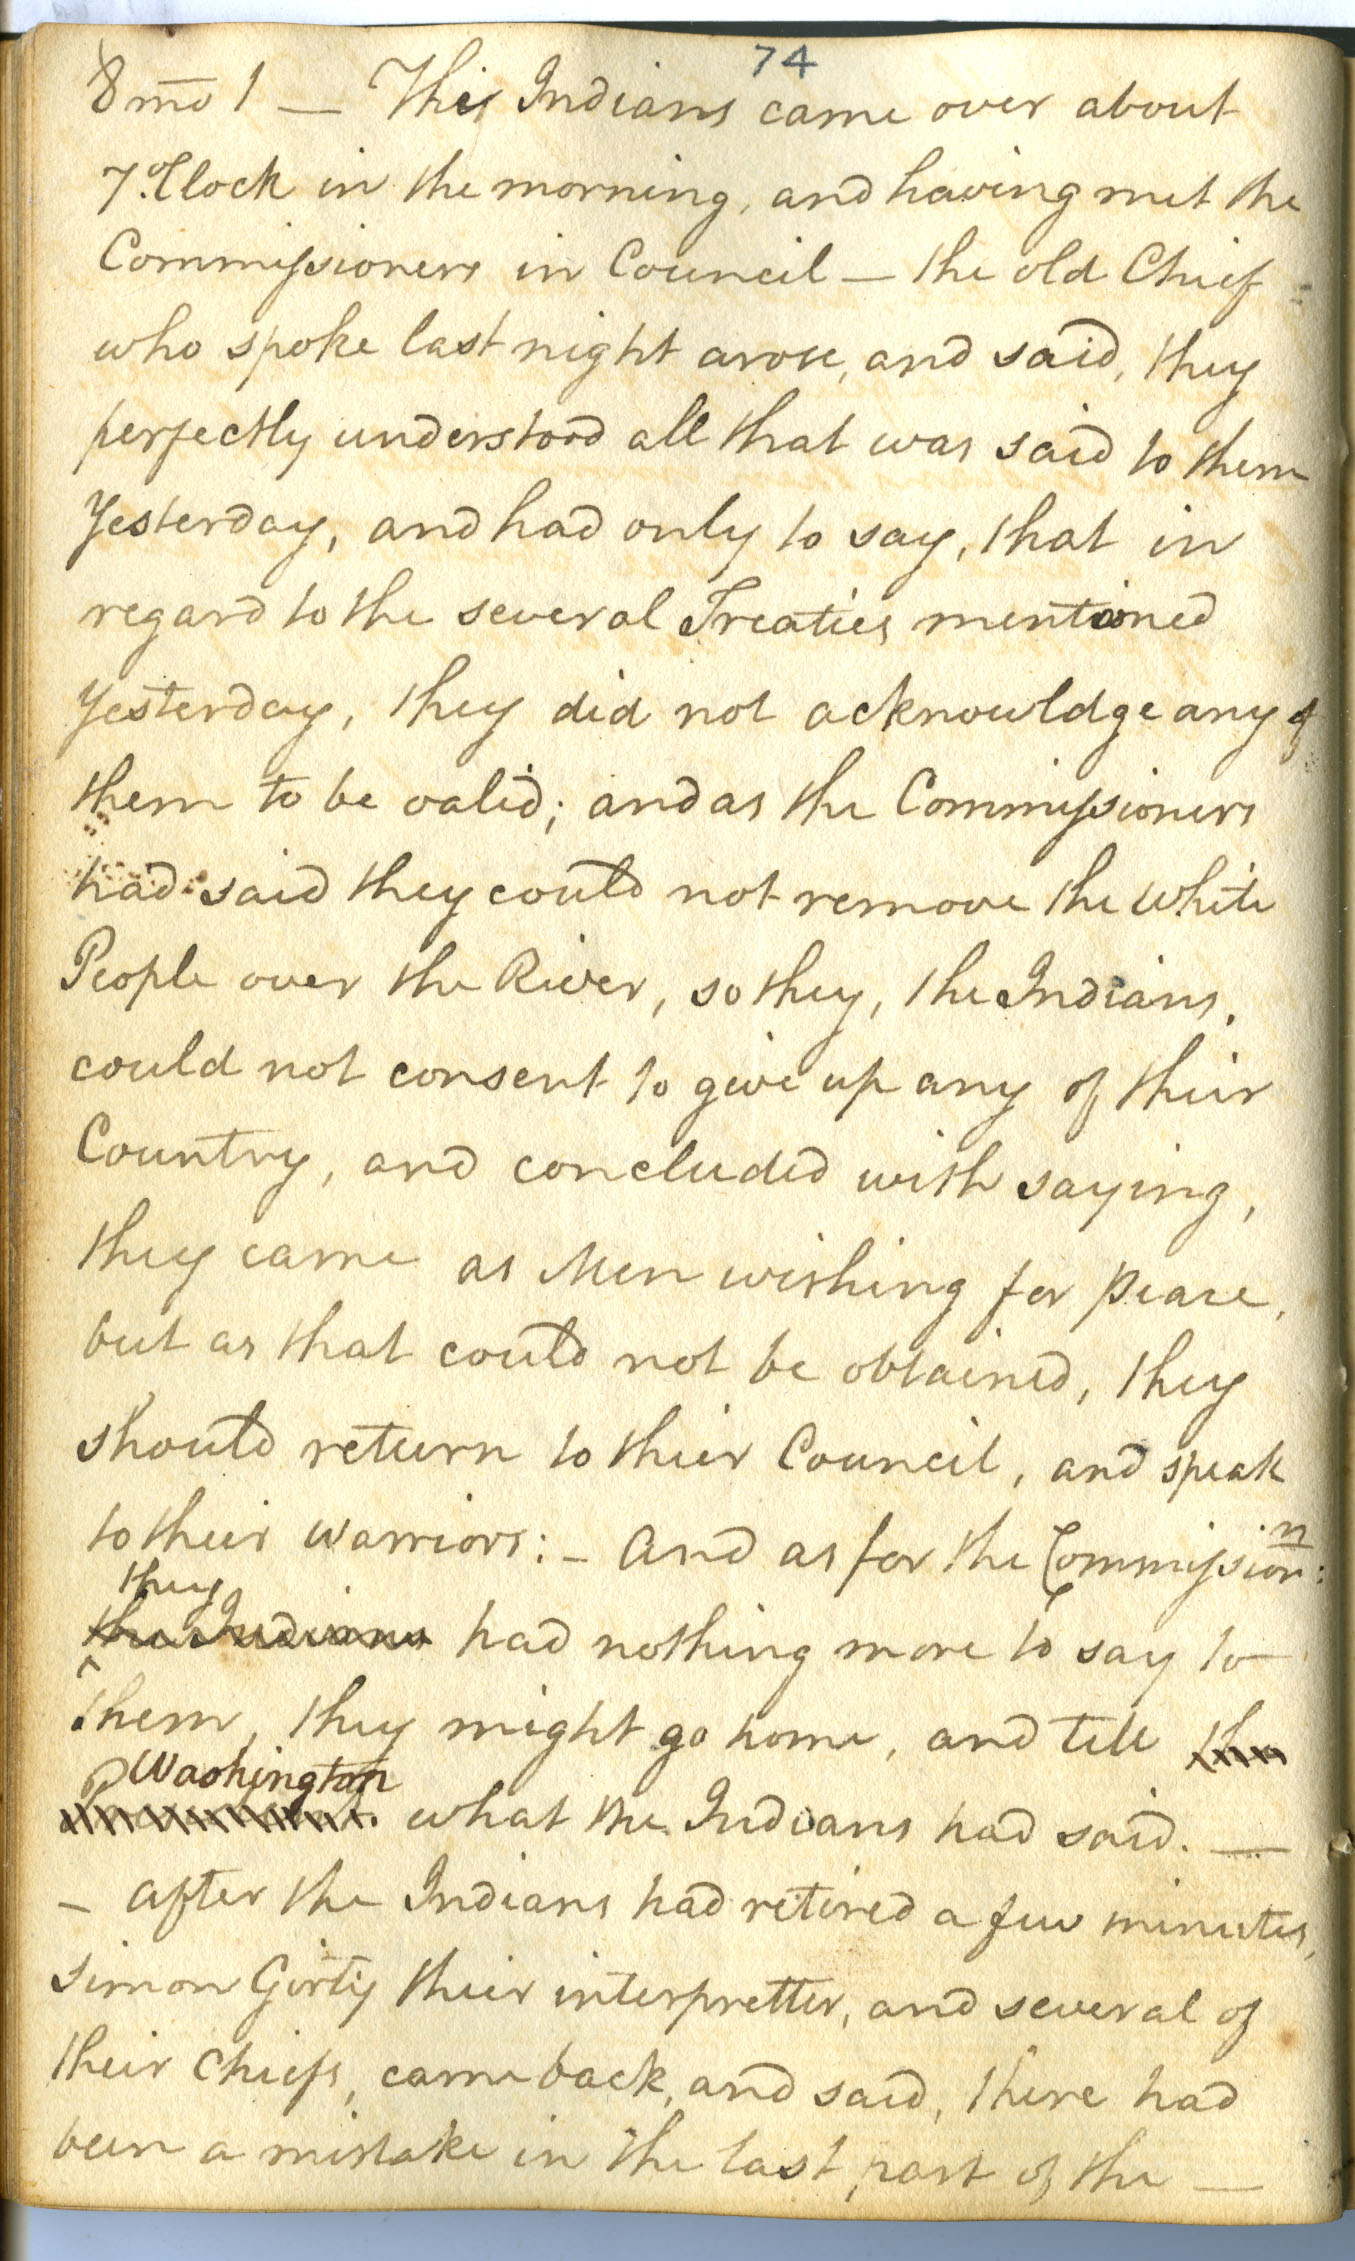 74
8 mo 1 — The Indians came over about
7 oClock in the morning, and having met the
Commissioners in Council — the old Chief
who spoke last night arose, and said, they
perfectly understood all that was said to them
Yesterday, and had only to say, that in
regard to the several Treaties mentioned
Yesterday, they did not acknowldge any of
them to be valid; and as the Commissioners
had said they could not remove the white
People over the River, so they, the Indians,
could not consent to give up any of their
Country, and concluded with saying,
they came as Men wishing for peace,
but as that could not be obtained, they
should return to their Council, and speak
to their warriors: – and as for the Commissionn:
they
the Indians had nothing more to say to
them, they might go home, and tell the
P Washington
what the Indians had said. —
– after the Indians had retired a few minutes,
Simon Girty their interpretter, and several of
their chiefs, came back, and said, there had
been a mistake in the last part of the —